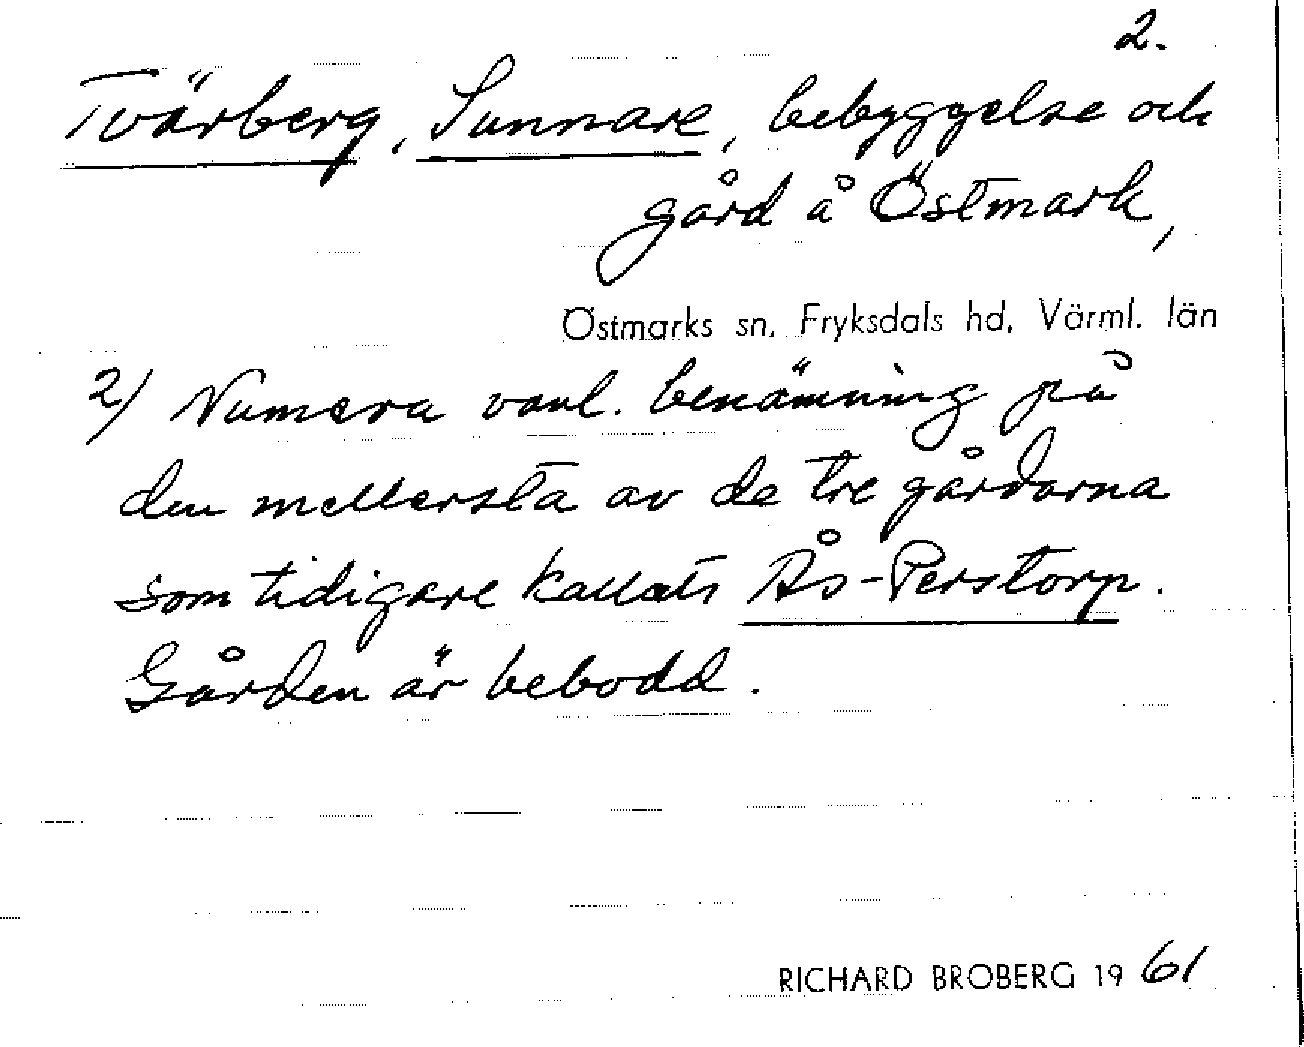 2.
Tvärberg, Sunnare, bebyggelse och
gård å Östmark,
Östmarks sn, Fryksdals hd, Värml. län
2) Numera vanl. benämning på
den mellersta av de tre gårdarna
som tidigare kallats Ås-Perstorp.
Gården är bebodd.
RICHARD BROBERG 1961